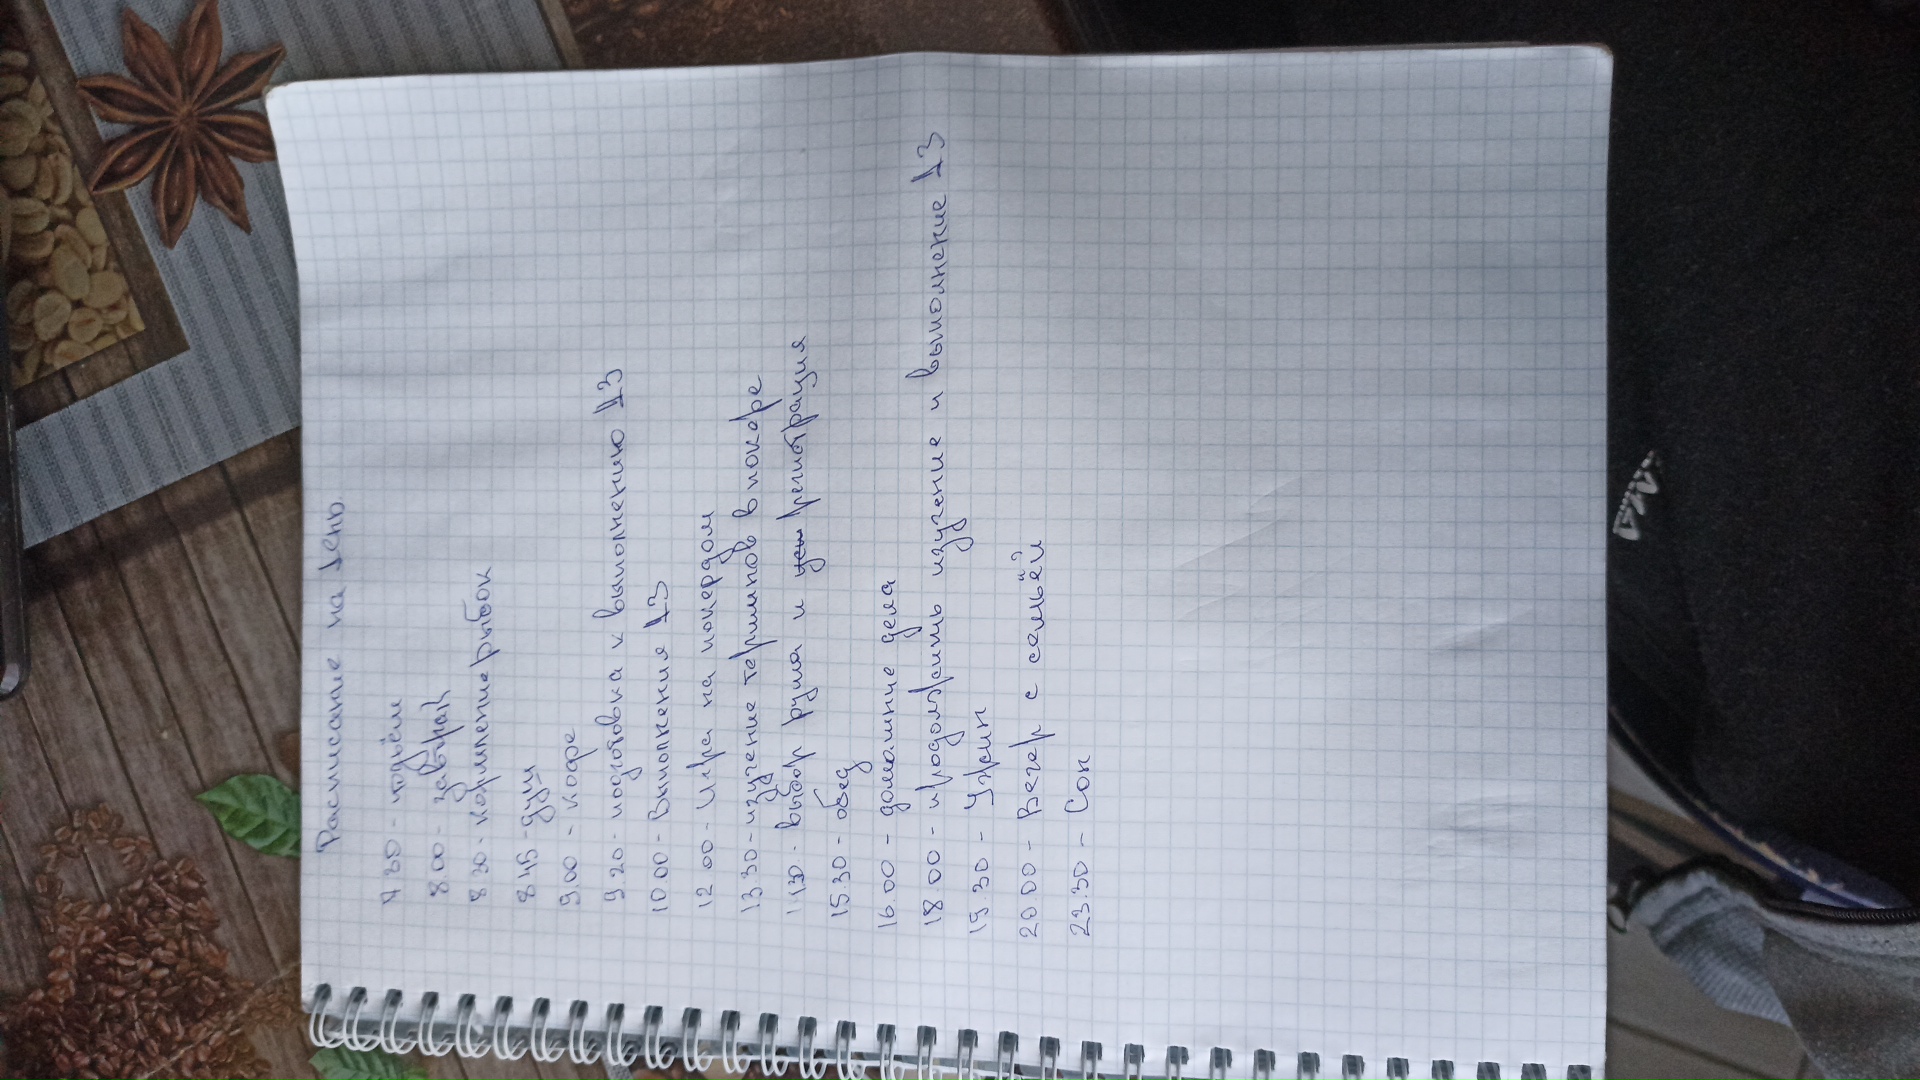 Расписание на день.
7 30 - подъём
8 00 - завтрак
8 30 - кормление рыбок
8 45 - душ
9.00 - кофе
9 20 - подготовка к выполнению ДЗ
10 00 - Выполнения ДЗ
12 00 - Игра на покердом
13 30 - изучение терминов в покере
выбор рума и регистрация
15.30 - обед
16.00 - домашние дела
18.00 - продолжить изучение и выполнение ДЗ
19.30 - Ужин
20.00 - Вечер с семьёй
23.30 - Сон